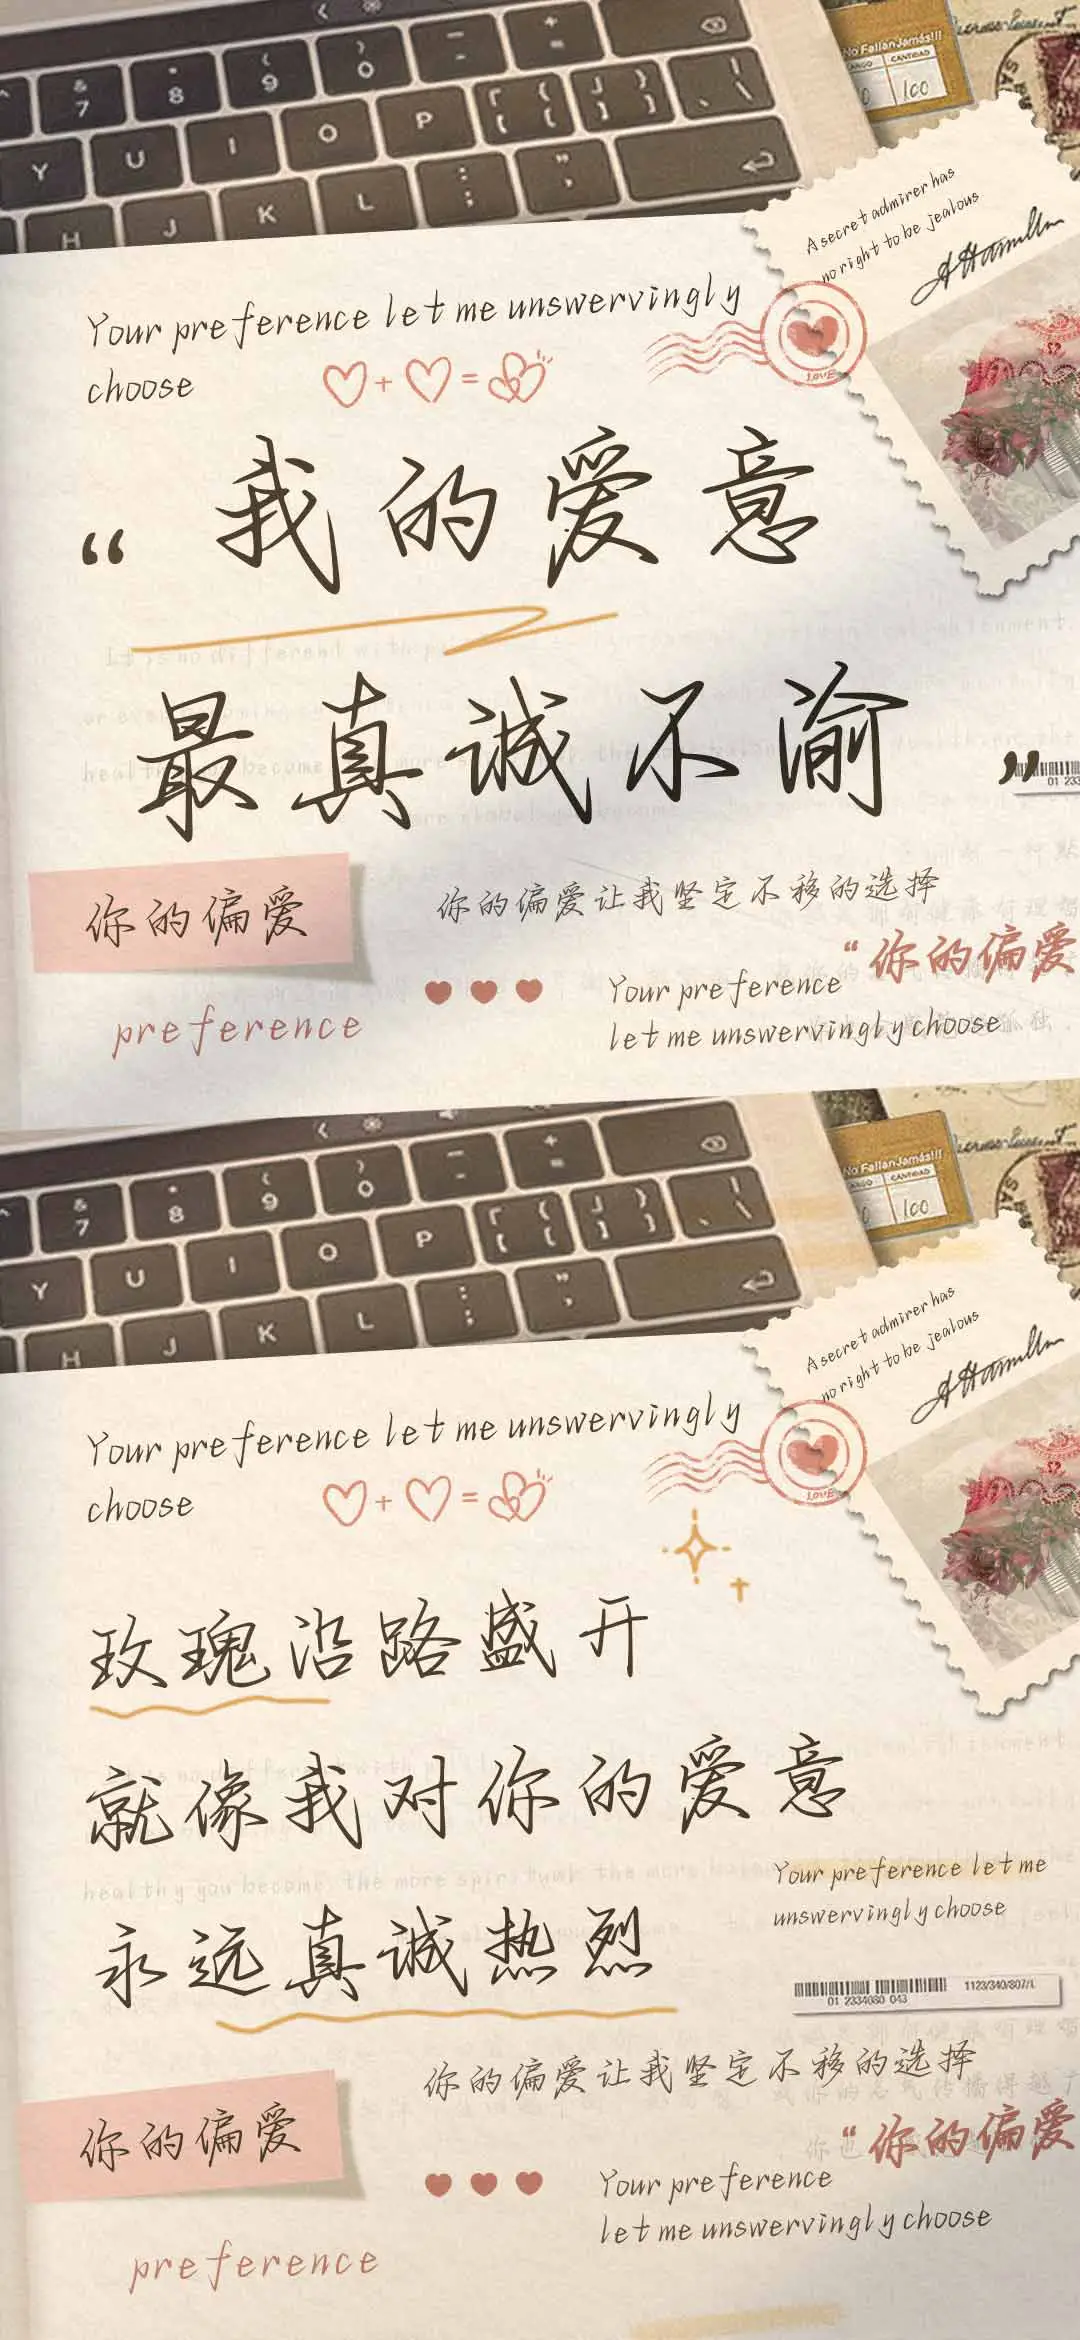 & 7
* 8
( 9
) 0
Y U I O P
H J K L
No Fallan Jamás!!!
CANTIDAD
100
A secret admirer has
no right to be jealous
A Hamilton
Your preference let me unswervingly
choose
LOVE
“我的爱意
最真诚不渝”
你的偏爱
preference
你的偏爱让我坚定不移的选择
“你的偏爱
Your preference
let me unswervingly choose
& 7
* 8
( 9
) 0
Y U I O P
H J K L
No Fallan Jamás!!!
CANTIDAD
100
A secret admirer has
no right to be jealous
A Hamilton
Your preference let me unswervingly
choose
LOVE
玫瑰沿路盛开
就像我对你的爱意
永远真诚热烈
Your preference let me
unswervingly choose
01 2334080 043
1123/340/807/L
你的偏爱
preference
你的偏爱让我坚定不移的选择
“你的偏爱
Your preference
let me unswervingly choose